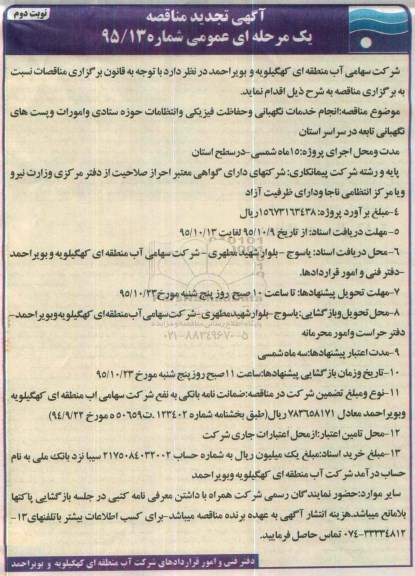 آگهی تجدید مناقصه
نوبت دوم
یک مرحله ای عمومی شماره ۹۵/۱۳
شرکت سهامی آب منطقه ای کهگیلویه و بویراحمد در نظر دارد با توجه به قانون برگزاری مناقصات نسبت
به برگزاری مناقصه به شرح ذیل اقدام نماید.
موضوع مناقصه: انجام خدمات نگهبانی وحفاظت فیزیکی وانتظامات حوزه ستادی وامورات وپست های
نگهبانی تابعه در سراسر استان
مدت ومحل اجرای پروژه: ۱۵ماه شمسی -درسطح استان
پایه و رشته شرکت پیمانکاری: شرکتهای دارای گواهی معتبر احراز صلاحیت از دفتر مرکزی وزارت نیرو
ویا مرکز انتظامی ناجا ودارای ظرفیت آزاد
۴-مبلغ برآورد پروژه: ۱۵۶۷۳۱۶۳۴۳۸ریال
۵-مهلت دریافت اسناد: از تاریخ ۹۵/۱۰/۹ لغایت ۹۵/۱۰/۱۳
۶-محل دریافت اسناد: یاسوج - بلوار شهید مطهری - شرکت سهامی آب منطقه ای کهگیلویه و بویراحمد
-دفتر فنی و امور قراردادها.
۷-مهلت تحویل پیشنهادها: تا ساعت ۱۰ صبح روز پنج شنبه مورخ ۹۵/۱۰/۲۳
۸-محل تحویل وبازگشایی: یاسوج-بلوارشهیدمطهری-شرکت سهامی آب منطقه ای کهگیلویه وبویراحمد-
دفتر حراست وامور محرمانه
۹-مدت اعتبار پیشنهادها: سه ماه شمسی
۱۰-تاریخ وزمان بازگشایی پیشنهادها: ساعت ۱۱صبح روز پنج شنبه مورخ ۹۵/۱۰/۲۳
۱۱-نوع ومبلغ تضمین شرکت در مناقصه: ضمانت نامه بانکی به نفع شرکت سهامی اب منطقه ای کهگیلویه
وبویراحمد معادل ۷۸۳۶۵۸۱۷۱ریال(طبق بخشنامه شماره ۱۲۳۴۰۲.ت۵۰۶۵۹ ه مورخ ۹۴/۹/۲۲)
۱۲-محل تامین اعتبار: ازمحل اعتبارات جاری شرکت
۱۳-مبلغ خرید اسناد: مبلغ یک میلیون ریال به شماره حساب ۲۱۷۵۰۸۴۰۳۲۰۰۲ سیبا نزد بانک ملی به نام
حساب درآمد شرکت آب منطقه ای کهگیلویه وبویراحمد
سایر موارد: حضور نمایندگان رسمی شرکت همراه با داشتن معرفی نامه کتبی در جلسه بازگشایی پاکتها
بلامانع میباشد.هزینه انتشار آگهی به عهده برنده مناقصه میباشد-برای کسب اطلاعات بیشتر باتلفنهای ۱۳-
۰۷۴-۳۳۳۳۴۸۱۲ تماس حاصل فرمایید.
دفتر فنی و امور قراردادهای شرکت آب منطقه ای کهگیلویه و بویراحمد